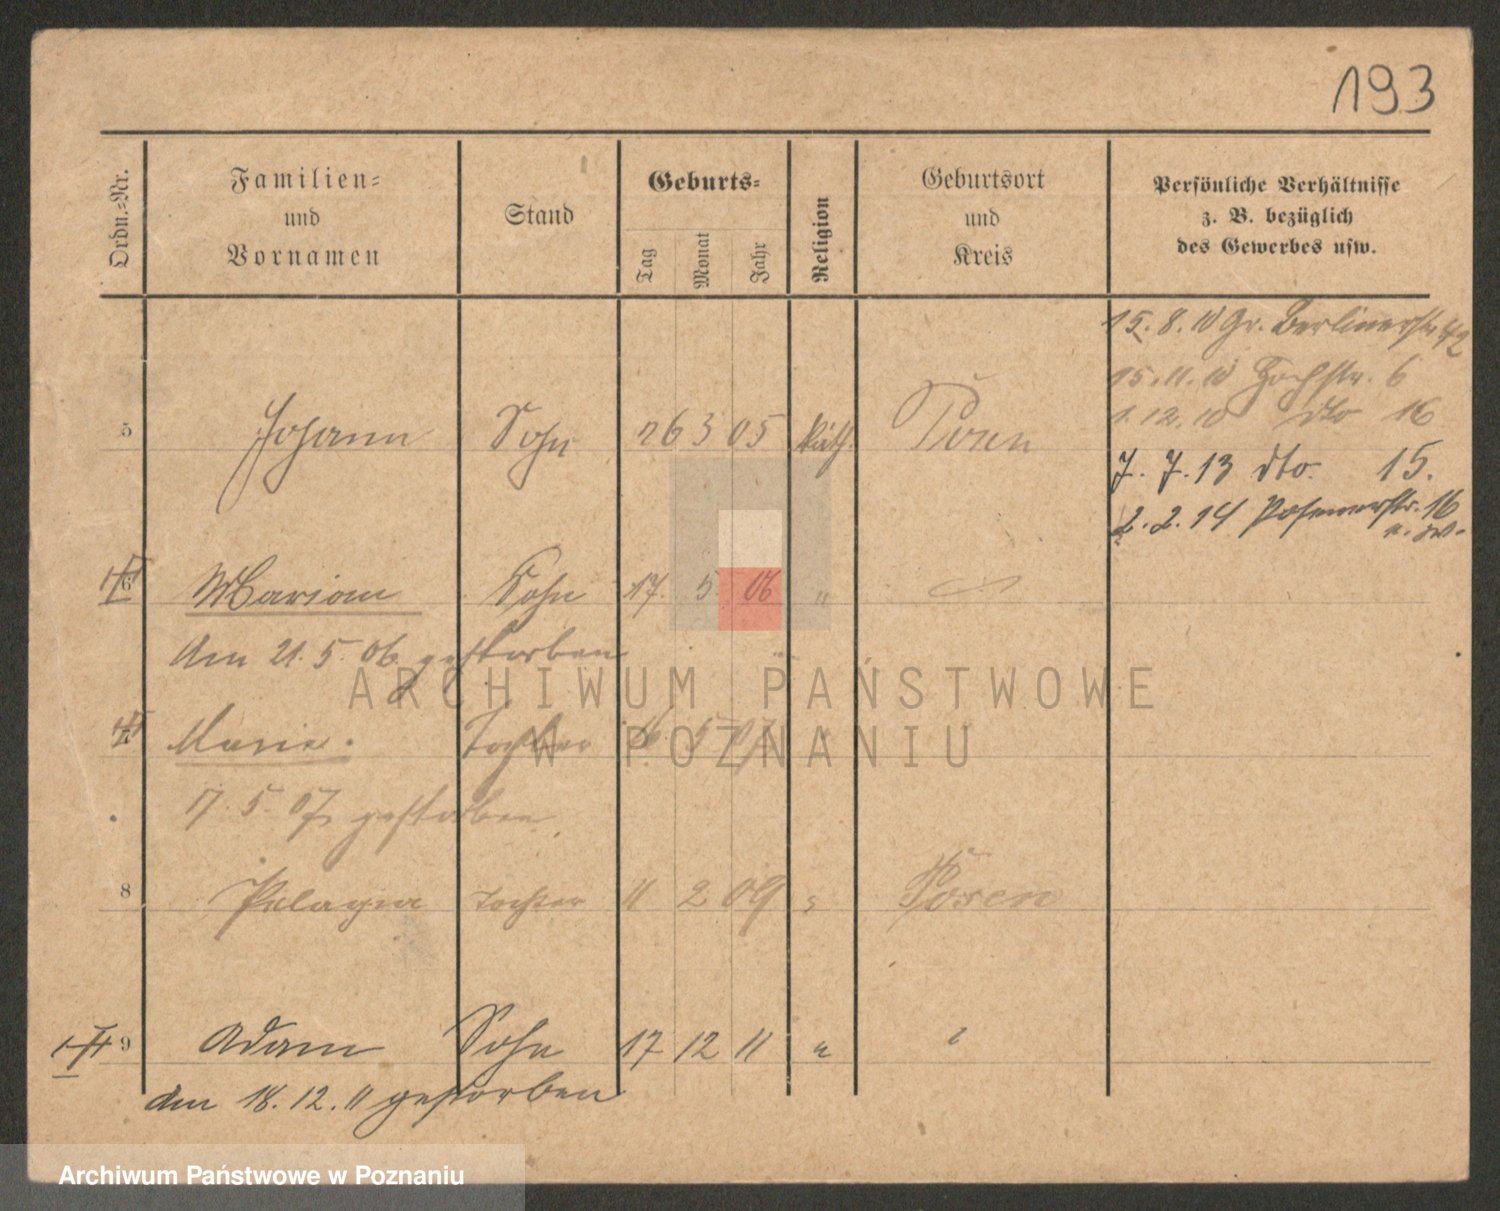 193
Ordn.-Nr.
Familien-
und
Vornamen
Stand
Geburts-
Tag
Monat
Jahr
Religion
Geburtsort
und
Kreis
Persönliche Verhältnisse
z. B. bezüglich
des Gewerbes usw.
15. 8. 10 Gr. Berlinerstr 42
15. 11. 10 Hochstr. 6
1. 12. 10 dto 16
7. 7. 13 dto. 15.
2. 2. 14 Posenerstr. 16
5 Johann Sohn 26 3 05 kath. Posen
6 Marian Sohn 17. 5 06 "
Am 21. 5. 06 gestorben
7 Marie. Tochter 16. 5 07
17. 5. 07 gestorben
8 Pelagia Tochter 11 2 09 Posen
9 Adam Sohn 17 12 11 "
den 18. 12. 11 gestorben
ARCHIWUM PAŃSTWOWE
W POZNANIU
Archiwum Państwowe w Poznaniu